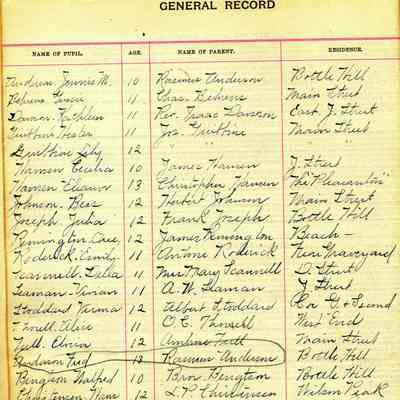 GENERAL RECORD
NAME OF PUPIL. AGE. NAME OF PARENT. RESIDENCE.
Andersen, Jennie M. 10 Rasmus Anderson Bottle Hill
Behrens 11 Chas. Behrens Main Street
Dawson Kathleen 11 Rev. Isaac Dawson East J. Street
Guthrie Hester 11 Jos. Guthrie Main Street
Guthrie 12
Hansen Cecilia 10 James Hansen J. Street
Hansen Eleanor 13 Christopher Hansen "The Pleasanton"
Johnson, Bess 12 Herbert Johnson Main Street
Joseph Julia 12 Frank Joseph Bottle Hill
Remington 12 James Remington Beach
Roderick, Emily 11 Antone Roderick Near Graveyard
Scannell, Lelia 11 Mrs. Mary Scannell D. Street
Seaman, Vivian 11 A. W. Seaman J. Street
Stoddard Verma 12 Elbert Stoddard Cor. & Second
Alice 11 O. C. West End
Tuth, Elvira 12 Tuth Main Street
Anderson Fred 12 Rasmus Anderson Bottle Hill
Bengtson 10 Bros. Bengtson Bottle Hill
Christensen 12 L. P. Christensen Wilson Peak